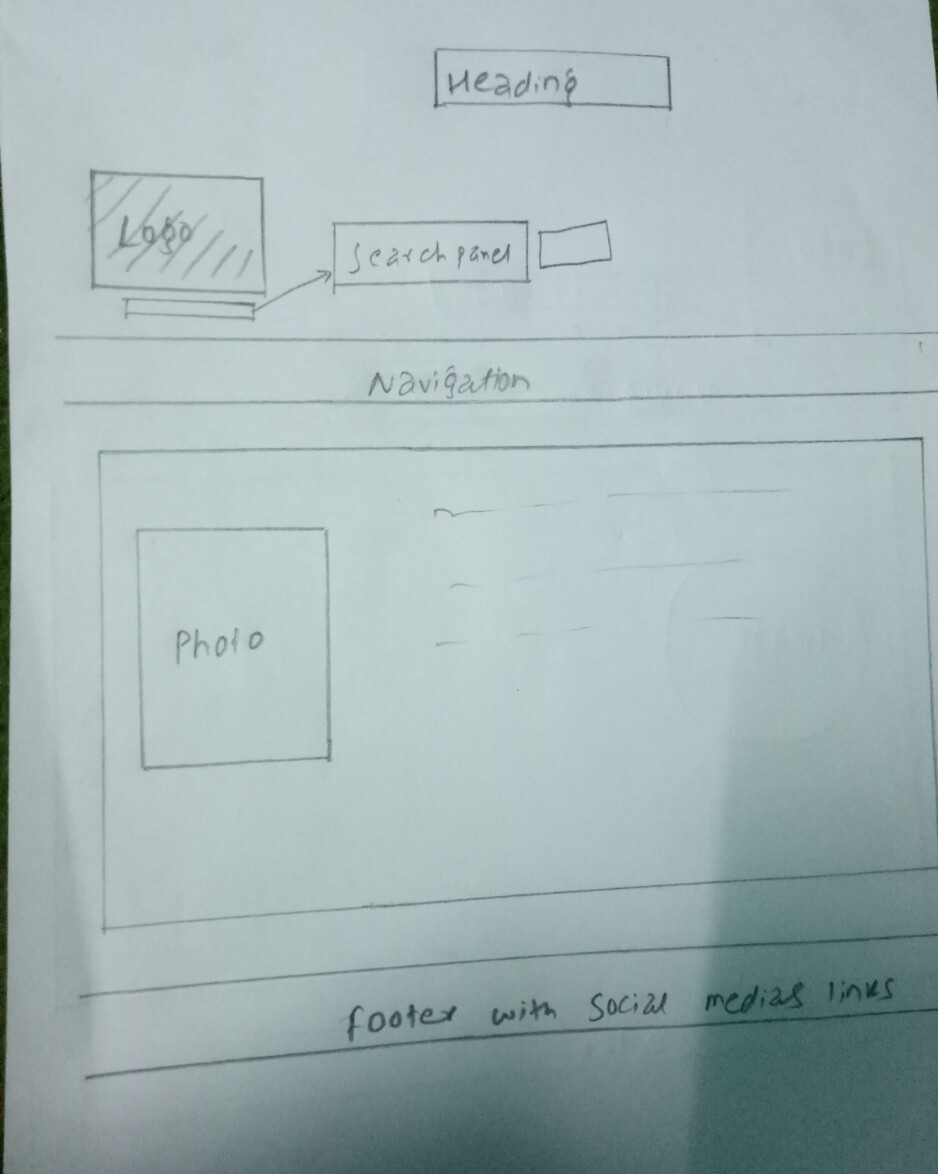 Heading
Logo
Search panel
Navigation
Photo
footer with social medias links